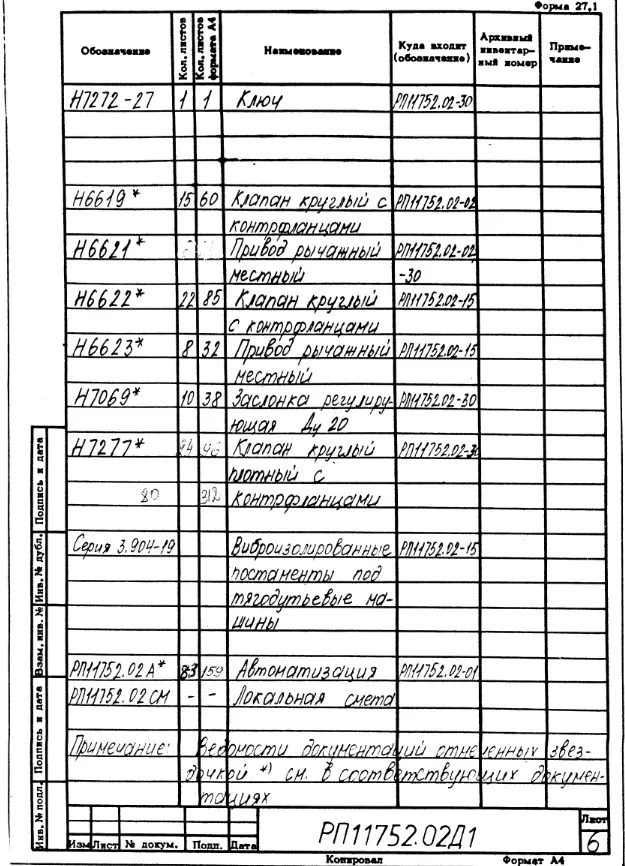 Форма 27,1
Обозначение Кол. листов Кол. листов формата А4 Наименование Куда входит (обозначение) Архивный инвентарный номер Приме-чание
Н7272-27 1 1 Ключ РП11752.02-30
Н6619* 15 60 Клапан круглый с РП11752.02-02
контрфланцами
Н6621* Привод рычажный РП11752.02-02
местный -30
Н6622* 22 85 Клапан круглый РП11752.02-15
с контрфланцами
Н6623* 8 32 Привод рычажный РП11752.02-15
местный
Н7069* 10 38 Заслонка регулиру- РП11752.02-30
ющая Ду 20
Н7277* 24 96 Клапан круглый РП11752.02-30
плотный с
80 312 контрфланцами
Серия 3.904-19 Виброизолированные РП11752.02-15
постаменты под
тягодутьевые ма-
шины
РП11752.02А* 83 159 Автоматизация РП11752.02-01
РП11752.02СМ - - Локальная смета
Примечание: Ведомости документаций отмеченных звез-
дочкой *) см. в соответствующих докумен-
тациях
Инв. № подл. Подпись и дата Взам. инв. № Инв. № дубл. Подпись и дата
Изм Лист № докум. Подп. Дата
РП11752.02Д1
Лист
6
Копировал Формат А4